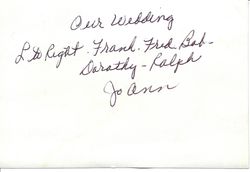 Our Wedding
L to Right. Frank. Fred Bob-
Dorothy - Ralph
Jo Ann